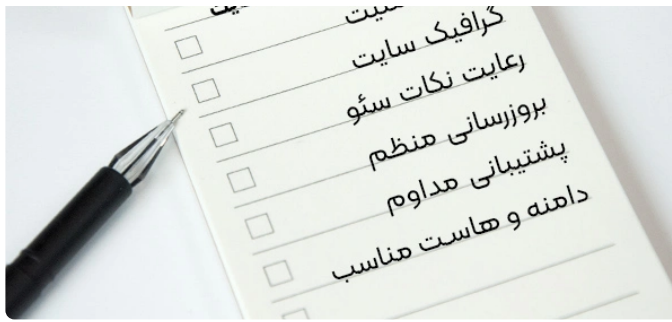 گرافیک سایت
رعایت نکات سئو
بروزرسانی منظم
پشتیبانی مداوم
دامنه و هاست مناسب